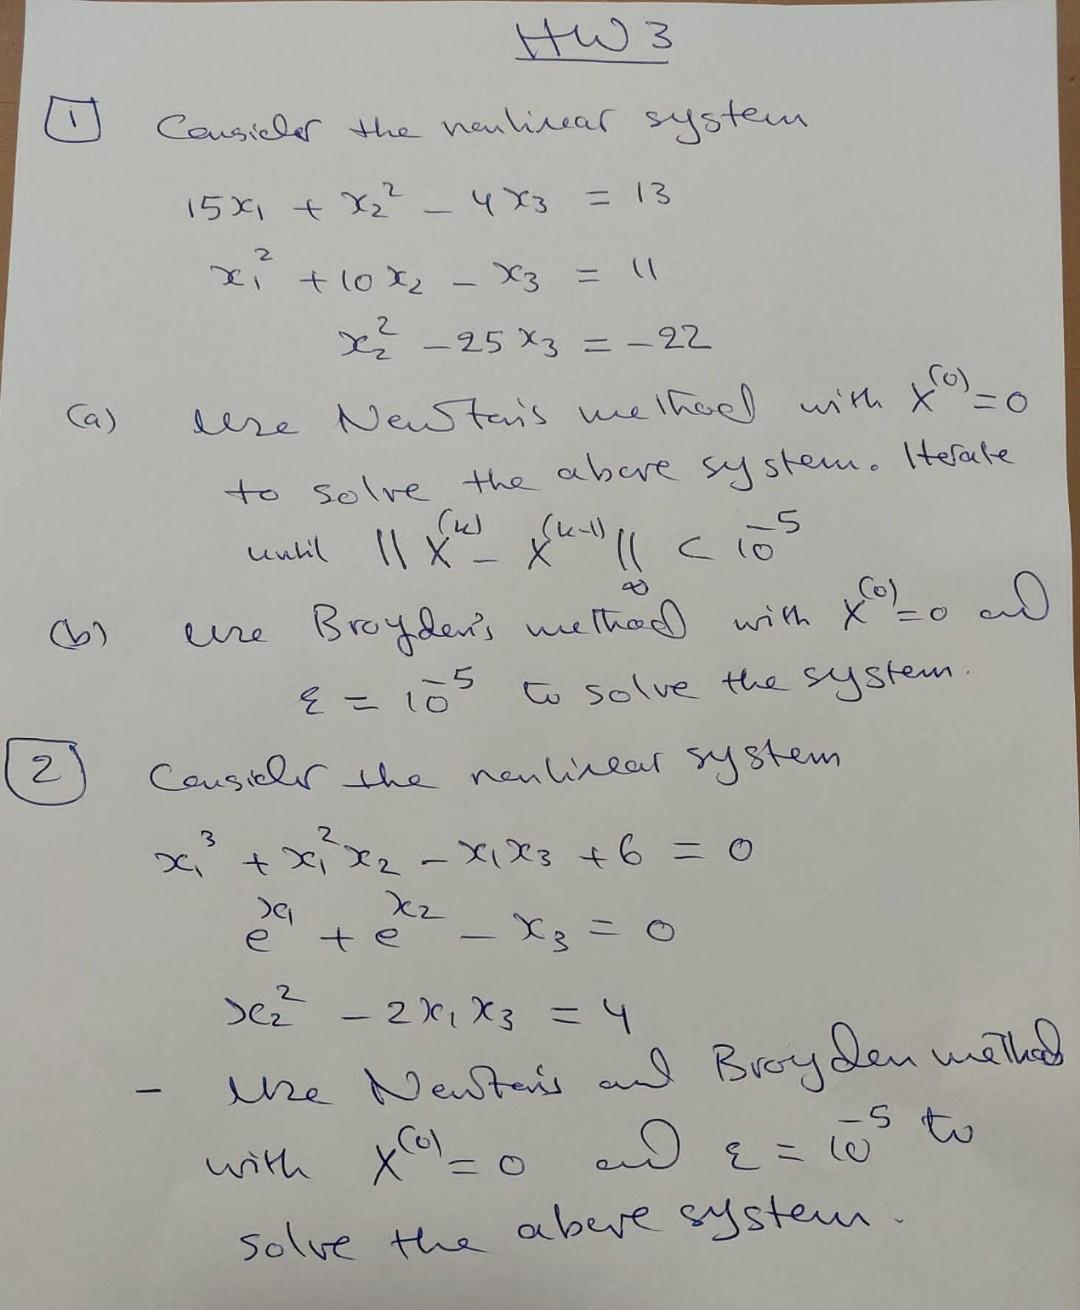 HW 3
1 Consider the nonlinear system
15x₁ + x₂² - 4x₃ = 13
x₁² + 10x₂ - x₃ = 11
x₂² - 25x₃ = -22
(a) Use Newton's method with x⁽⁰⁾=0
to solve the above system. Iterate
until ||x⁽ᵏ⁾ - x⁽ᵏ⁻¹⁾||∞ < 10⁻⁵
(b) use Broyden's method with x⁽⁰⁾=0 and
ε = 10⁻⁵ to solve the system.
2 Consider the nonlinear system
x₁³ + x₁²x₂ - x₁x₃ + 6 = 0
e^x₁ + e^x₂ - x₃ = 0
x₂² - 2x₁x₃ = 4
- Use Newton's and Broyden method
with x⁽⁰⁾=0 and ε = 10⁻⁵ to
solve the above system.